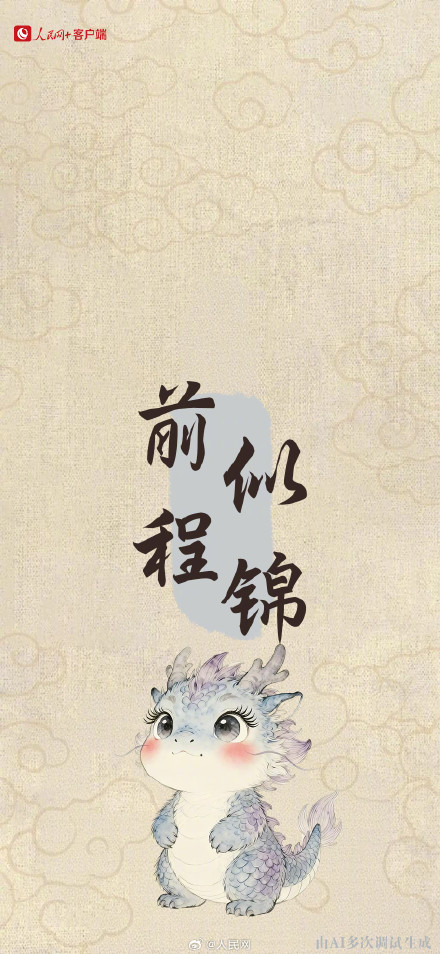 人民网+客户端
前程
似锦
@人民网
由AI多次调试生成